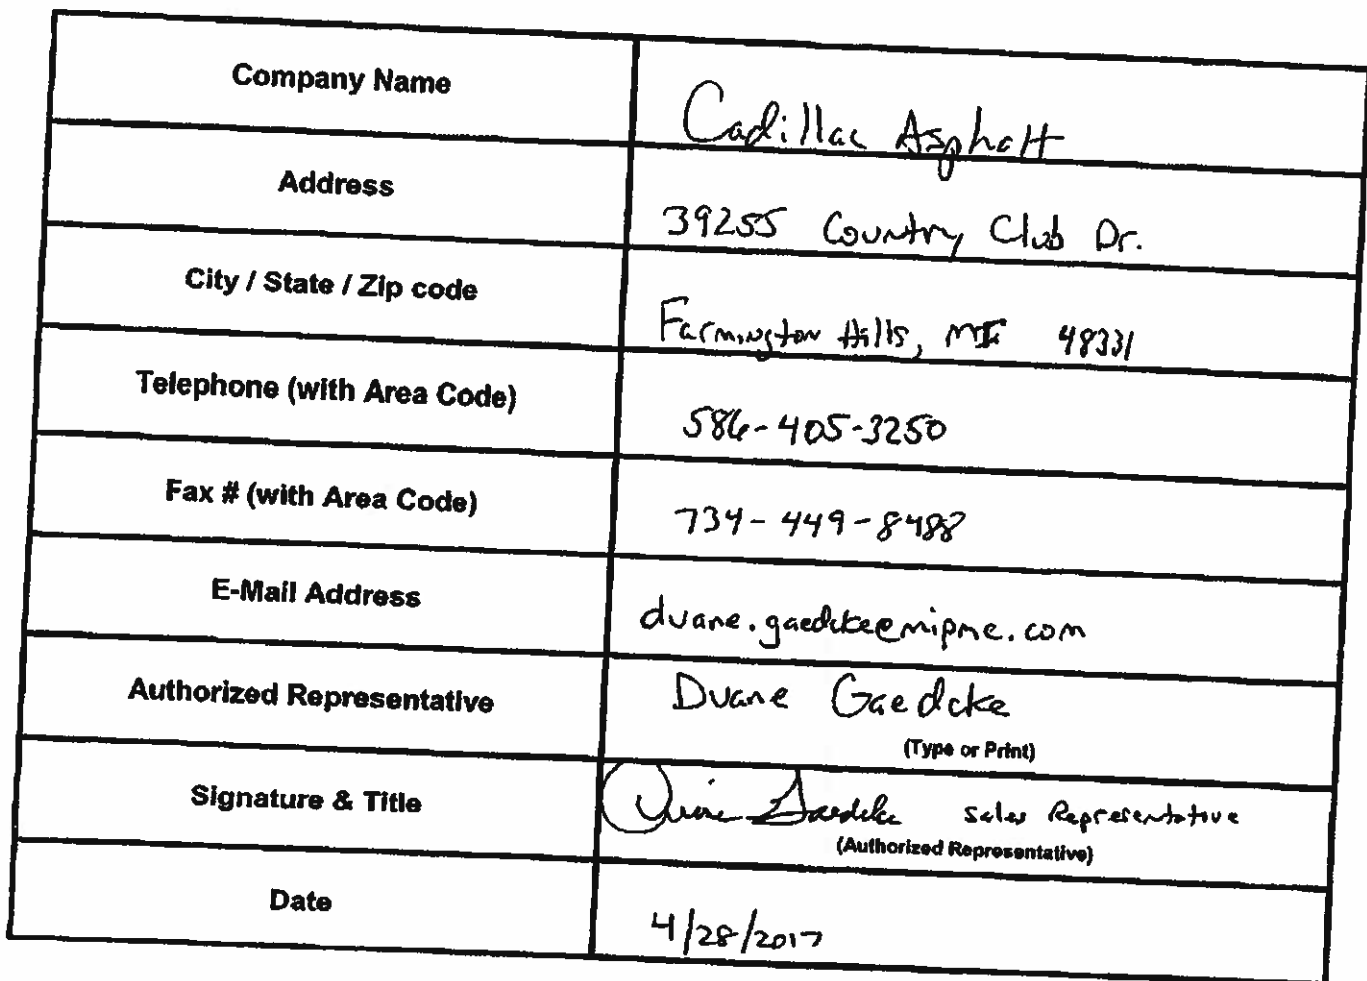 Company Name
Cadillac Asphalt
Address
39255 Country Club Dr.
City / State / Zip code
Farmington Hills, MI 48331
Telephone (with Area Code)
586-405-3250
Fax # (with Area Code)
734-449-8488
E-Mail Address
duane.gaedcke@mipmc.com
Authorized Representative
Duane Gaedcke
(Type or Print)
Signature & Title
Duane Gaedcke Sales Representative
(Authorized Representative)
Date
4/28/2017